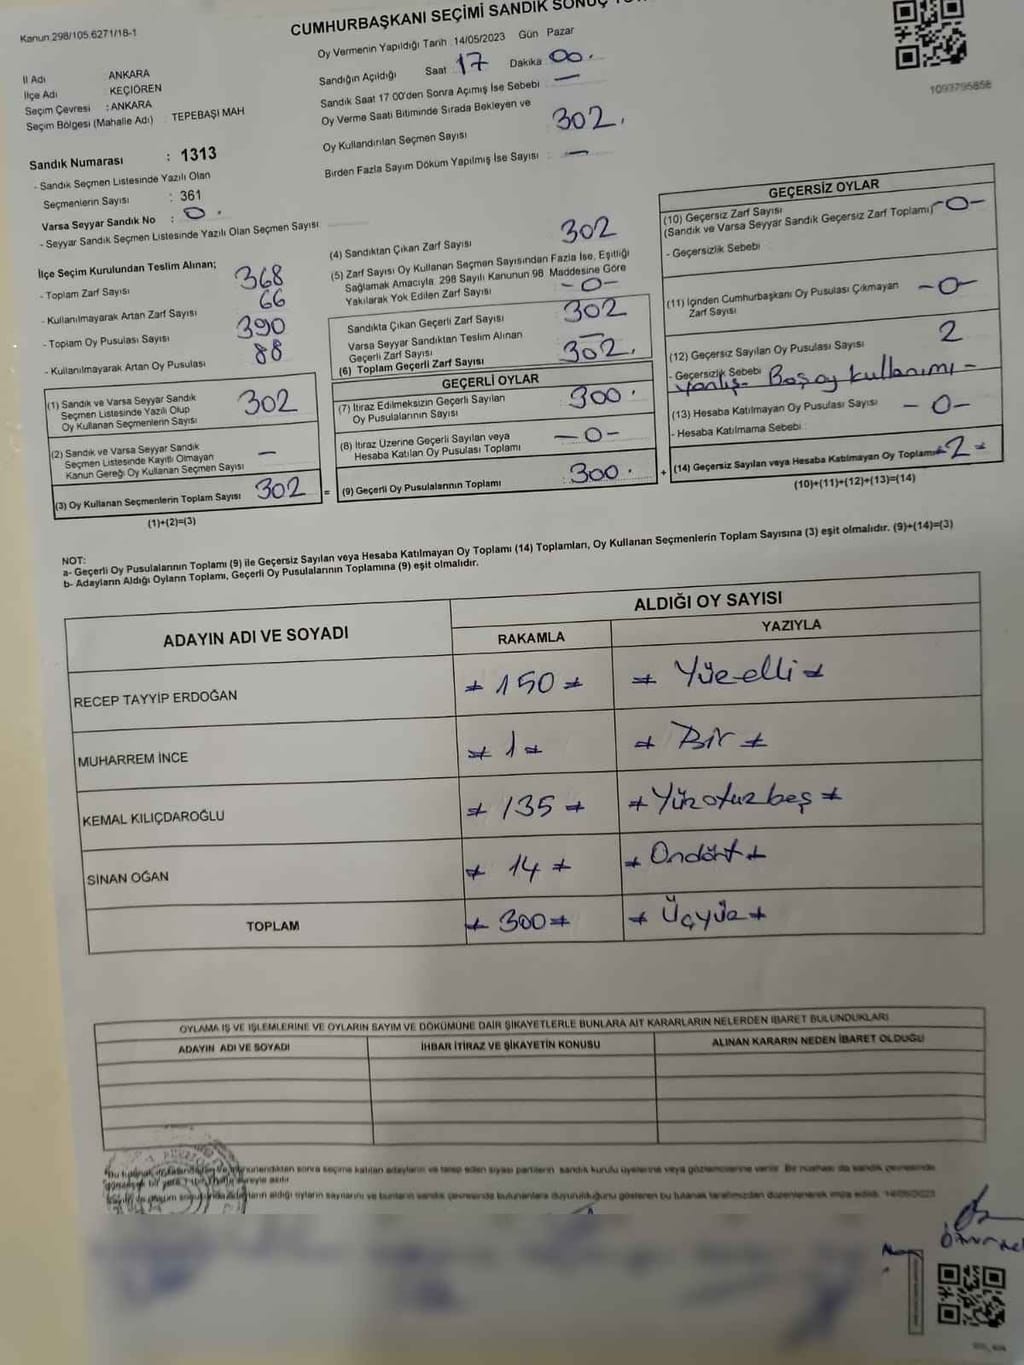 Kanun 298/105.6271/18-1
CUMHURBAŞKANI SEÇİMİ SANDIK SONUÇ
Oy Vermenin Yapıldığı Tarih 14/05/2023 Gün Pazar
İl Adı ANKARA
İlçe Adı KEÇİÖREN
Seçim Çevresi : ANKARA
Seçim Bölgesi (Mahalle Adı) : TEPEBAŞI MAH
Sandığın Açıldığı Saat 17 Dakika 00.
Sandık Saat 17 00'den Sonra Açımış İse Sebebi —
Oy Verme Saati Bitiminde Sırada Bekleyen ve
Oy Kullandırılan Seçmen Sayısı 302.
Birden Fazla Sayım Döküm Yapılmış İse Sayısı : —
1093795856
Sandık Numarası : 1313
- Sandık Seçmen Listesinde Yazılı Olan
Seçmenlerin Sayısı : 361
Varsa Seyyar Sandık No : 0.
- Seyyar Sandık Seçmen Listesinde Yazılı Olan Seçmen Sayısı
İlçe Seçim Kurulundan Teslim Alınan;
- Toplam Zarf Sayısı 368
- Kullanılmayarak Artan Zarf Sayısı 66
- Toplam Oy Pusulası Sayısı 390
- Kullanılmayarak Artan Oy Pusulası 88
(1) Sandık ve Varsa Seyyar Sandık
Seçmen Listesinde Yazılı Olup
Oy Kullanan Seçmenlerin Sayısı 302
(2) Sandık ve Varsa Seyyar Sandık
Seçmen Listesinde Kayıtlı Olmayan
Kanun Gereği Oy Kullanan Seçmen Sayısı —
(3) Oy Kullanan Seçmenlerin Toplam Sayısı 302 =
(1)+(2)=(3)
(4) Sandıktan Çıkan Zarf Sayısı 302
(5) Zarf Sayısı Oy Kullanan Seçmen Sayısından Fazla İse, Eşitliği
Sağlamak Amacıyla, 298 Sayılı Kanunun 98. Maddesine Göre
Yakılarak Yok Edilen Zarf Sayısı -0-
Sandıkta Çıkan Geçerli Zarf Sayısı 302
Varsa Seyyar Sandıktan Teslim Alınan
Geçerli Zarf Sayısı —
(6) Toplam Geçerli Zarf Sayısı 302.
GEÇERLİ OYLAR
(7) İtiraz Edilmeksizin Geçerli Sayılan
Oy Pusulalarının Sayısı 300.
(8) İtiraz Üzerine Geçerli Sayılan veya
Hesaba Katılan Oy Pusulası Toplamı -0-
(9) Geçerli Oy Pusulalarının Toplamı : 300. +
GEÇERSİZ OYLAR
(10) Geçersiz Zarf Sayısı
(Sandık ve Varsa Seyyar Sandık Geçersiz Zarf Toplamı) -0-
- Geçersizlik Sebebi
(11) İçinden Cumhurbaşkanı Oy Pusulası Çıkmayan
Zarf Sayısı -0-
(12) Geçersiz Sayılan Oy Pusulası Sayısı 2
- Geçersizlik Sebebi
yanlış- Boş oy kullanımı -
(13) Hesaba Katılmayan Oy Pusulası Sayısı -0-
- Hesaba Katılmama Sebebi
(14) Geçersiz Sayılan veya Hesaba Katılmayan Oy Toplamı 2
(10)+(11)+(12)+(13)=(14)
NOT:
a- Geçerli Oy Pusulalarının Toplamı (9) ile Geçersiz Sayılan veya Hesaba Katılmayan Oy Toplamı (14) Toplamları, Oy Kullanan Seçmenlerin Toplam Sayısına (3) eşit olmalıdır. (9)+(14)=(3)
b- Adayların Aldığı Oyların Toplamı, Geçerli Oy Pusulalarının Toplamına (9) eşit olmalıdır.
ADAYIN ADI VE SOYADI
ALDIĞI OY SAYISI
RAKAMLA YAZIYLA
RECEP TAYYİP ERDOĞAN 150 Yüzelli
MUHARREM İNCE 1 Bir
KEMAL KILIÇDAROĞLU 135 Yüzotuzbeş
SİNAN OĞAN 14 Ondört
TOPLAM 300 Üçyüz
OYLAMA İŞ VE İŞLEMLERİNE VE OYLARIN SAYIM VE DÖKÜMÜNE DAİR ŞİKAYETLERLE BUNLARA AİT KARARLARIN NELERDEN İBARET BULUNDUKLARI
ADAYIN ADI VE SOYADI İHBAR İTİRAZ VE ŞİKAYETİN KONUSU ALINAN KARARIN NEDEN İBARET OLDUĞU
sonra seçime katılan adayların ve talep eden siyasi partilerin sandık kurulu üyelerine veya gözlemcilerine verilir. Bir nüshası da sandık çevresinde
aldığı oyların sayılarını ve bunların sandık çevresinde bulunanlara duyurulduğunu gösteren bu tutanak tarafımızdan düzenlenerek imza edildi. 14/05/2023